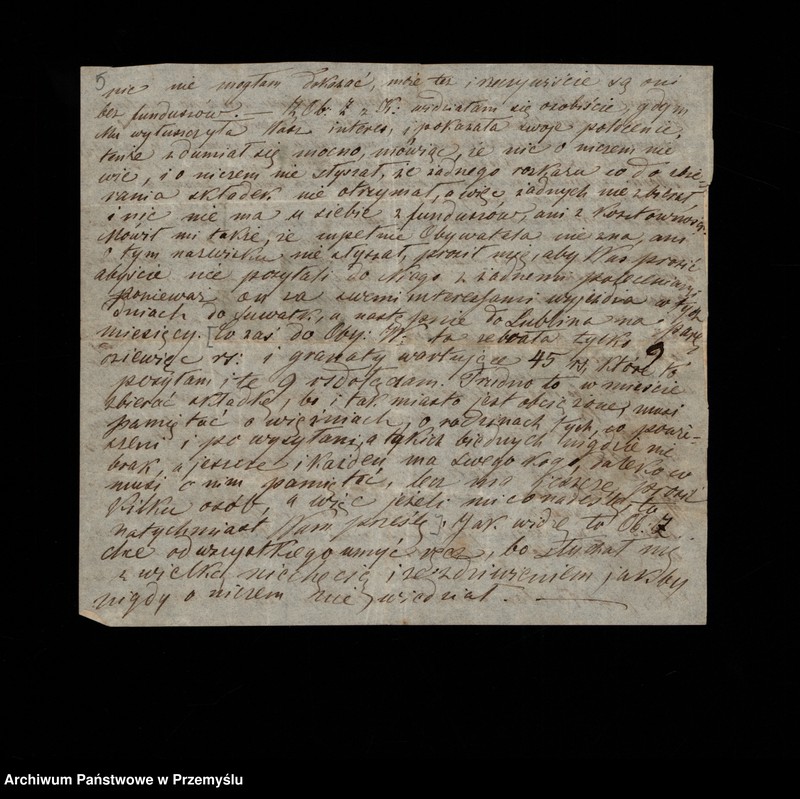 5
nic nie mogłam dokazać, może też i rzeczywiście są oni
bez funduszów. — Z Ob. Z z K: widziałam się osobiście, gdym
Mu wyłuszczyła Wasz interes, i pokazała swoje położenie,
tenże zdumiał się mocno, mówiąc, że nic o niczem nie
wie, i o niczem nie słyszał, że żadnego rozkazu co do zbie-
rania składek nie otrzymał, a więc żadnych nie zbierał,
i nic nie ma u siebie z funduszów, ani z kosztowności.
Mówił mi także, że zupełnie Obywatela nie zna, ani
o tym nazwisku nie słyszał, prosił mię, aby Was prosić
abyście nie pozytali do Niego z żadnemi poleceniami
ponieważ on za swemi interessami wyjeżdża w tych
dniach do Suwałk, a następnie do Lublina na parę
miesięcy. Co zaś do Oby: W: ta zebrała tylko
dziewięć rs: i granaty wartujące 45 rs, które to
posyłam i te 9 rs dołączam. Trudno to w mieście
zbierać składkę, bo i tak miasto jest obciążone, musi
pamiętać o więźniach, o rodzinach tych, co powie-
szeni i powysyłani, a takich biednych nigdzie nie
brak, a jeszcze i każden ma swego kogo, daleko co
musi o nim pamiętać, ten ma jeszcze
kilku osób, a więc jeżeli mi co nadeszlą, to
natychmiast Wam prześlę. Jak widzę to Ob. Z
chce od wszystkiego umyć ręce, bo słuchał mię
z wielką niechęcią i ze zdziwieniem jakby
nigdy o niczem nie wiedział. —
Archiwum Państwowe w Przemyślu